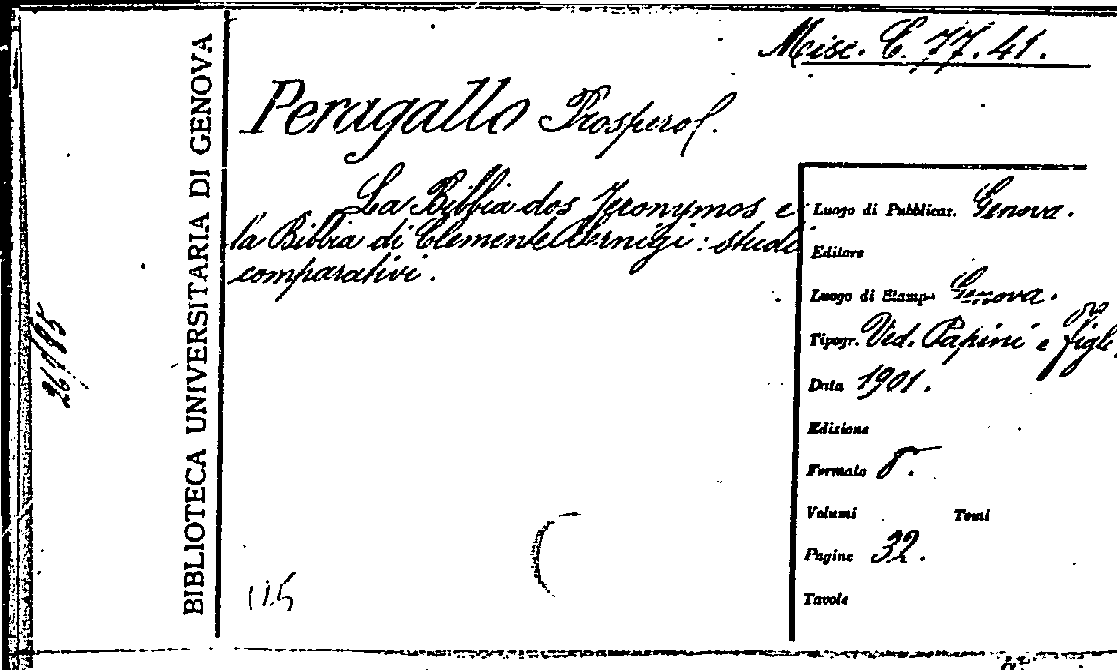 Misc. C. 77.41.
BIBLIOTECA UNIVERSITARIA DI GENOVA
Peragallo Prospero.
La Bibbia dos Jeronymos e
la Bibbia di Clemente Sernigi: studi
comparativi.
Luogo di Pubblicaz. Genova.
Editore
Luogo di Stamp. Genova.
Tipogr. Ved. Papini e figli
Data 1901.
Edizione
Formato 8°.
Volumi Tomi
Pagine 32.
Tavole
115